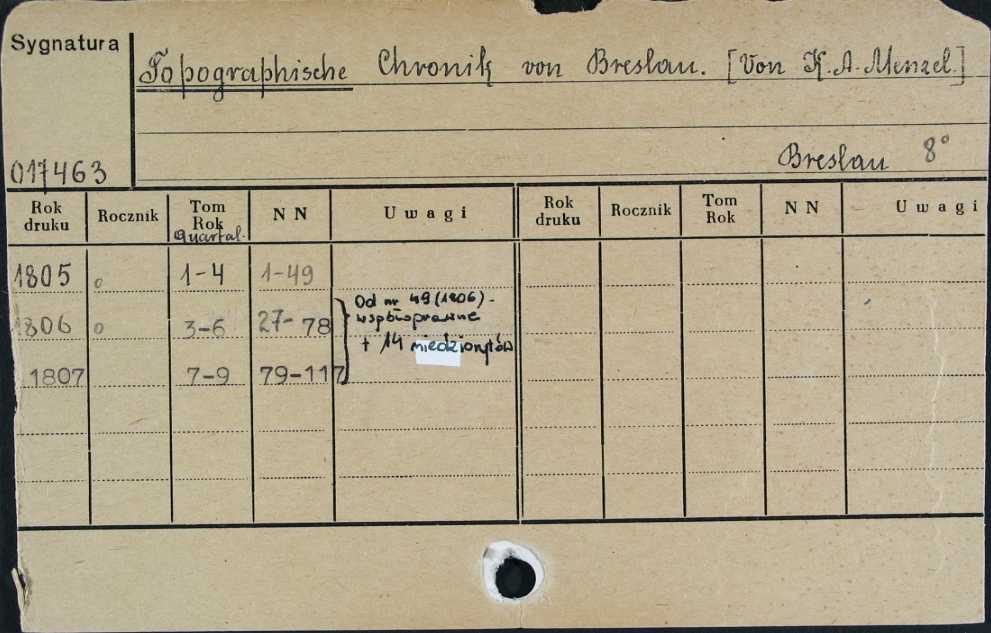 Sygnatura
Topographische Chronik von Breslau. [Von K. A. Menzel.]
017463
Breslau 8°
Rok druku Rocznik Tom Rok Quartal. N N Uwagi Rok druku Rocznik Tom Rok N N Uwagi
1805 o 1-4 1-49
1806 o 3-6 27-78
1807 7-9 79-117
Od nr 49 (1806) -
współoprawne
+ 14 miedziorytów